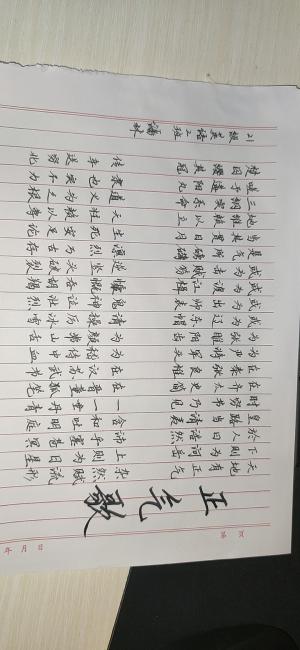 正气歌
天地有正气 杂然赋流形
下则为河岳 上则为日星
於人曰浩然 沛乎塞苍冥
皇路当清夷 含和吐明庭
时穷节乃见 一一垂丹青
在齐太史简 在晋董狐笔
在秦张良椎 在汉苏武节
为严将军头 为嵇侍中血
为张睢阳齿 为颜常山舌
或为辽东帽 清操厉冰雪
或为出师表 鬼神泣壮烈
或为渡江楫 慷慨吞胡羯
或为击贼笏 逆竖头破裂
是气所磅礴 凛烈万古存
当其贯日月 生死安足论
地维赖以立 天柱赖以尊
三纲实系命 道义为之根
嗟予遘阳九 隶也实不力
楚囚缨其冠 传车送穷北
21级英语2班
第 页
年 月 日